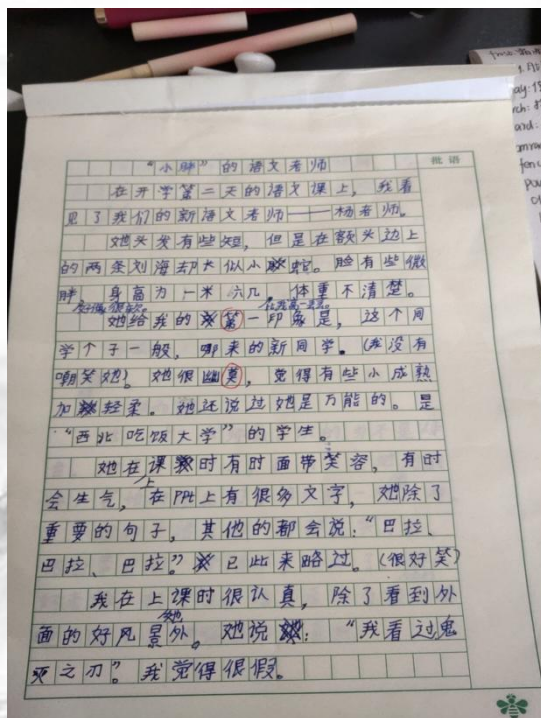 批语
"小胖"的语文老师
在开学第二天的语文课上,我看
见了我们的新语文老师——杨老师。
她头发有些短,但是在额头边上
的两条刘海却长似小蛇。脸有些微
胖,身高为一米六几,体重不清楚。
比我高一点点。
她给我的第一印象是,这个同
学个子一般,哪来的新同学。(我没有
嘲笑她)。她很幽莫,觉得有些小成熟
加轻柔。她还说过她是万能的。是
"西北吃饭大学"的学生。
她在课上时有时面带笑容,有时
会生气,在PPt上有很多文字,她除了
重要的句子,其他的都会说:"巴拉、
巴拉、巴拉。"已此来略过。(很好笑)
我在上课时很认真,除了看到外
面的好风景外。她说她:"我看过鬼
灭之刃"。我觉得很假。